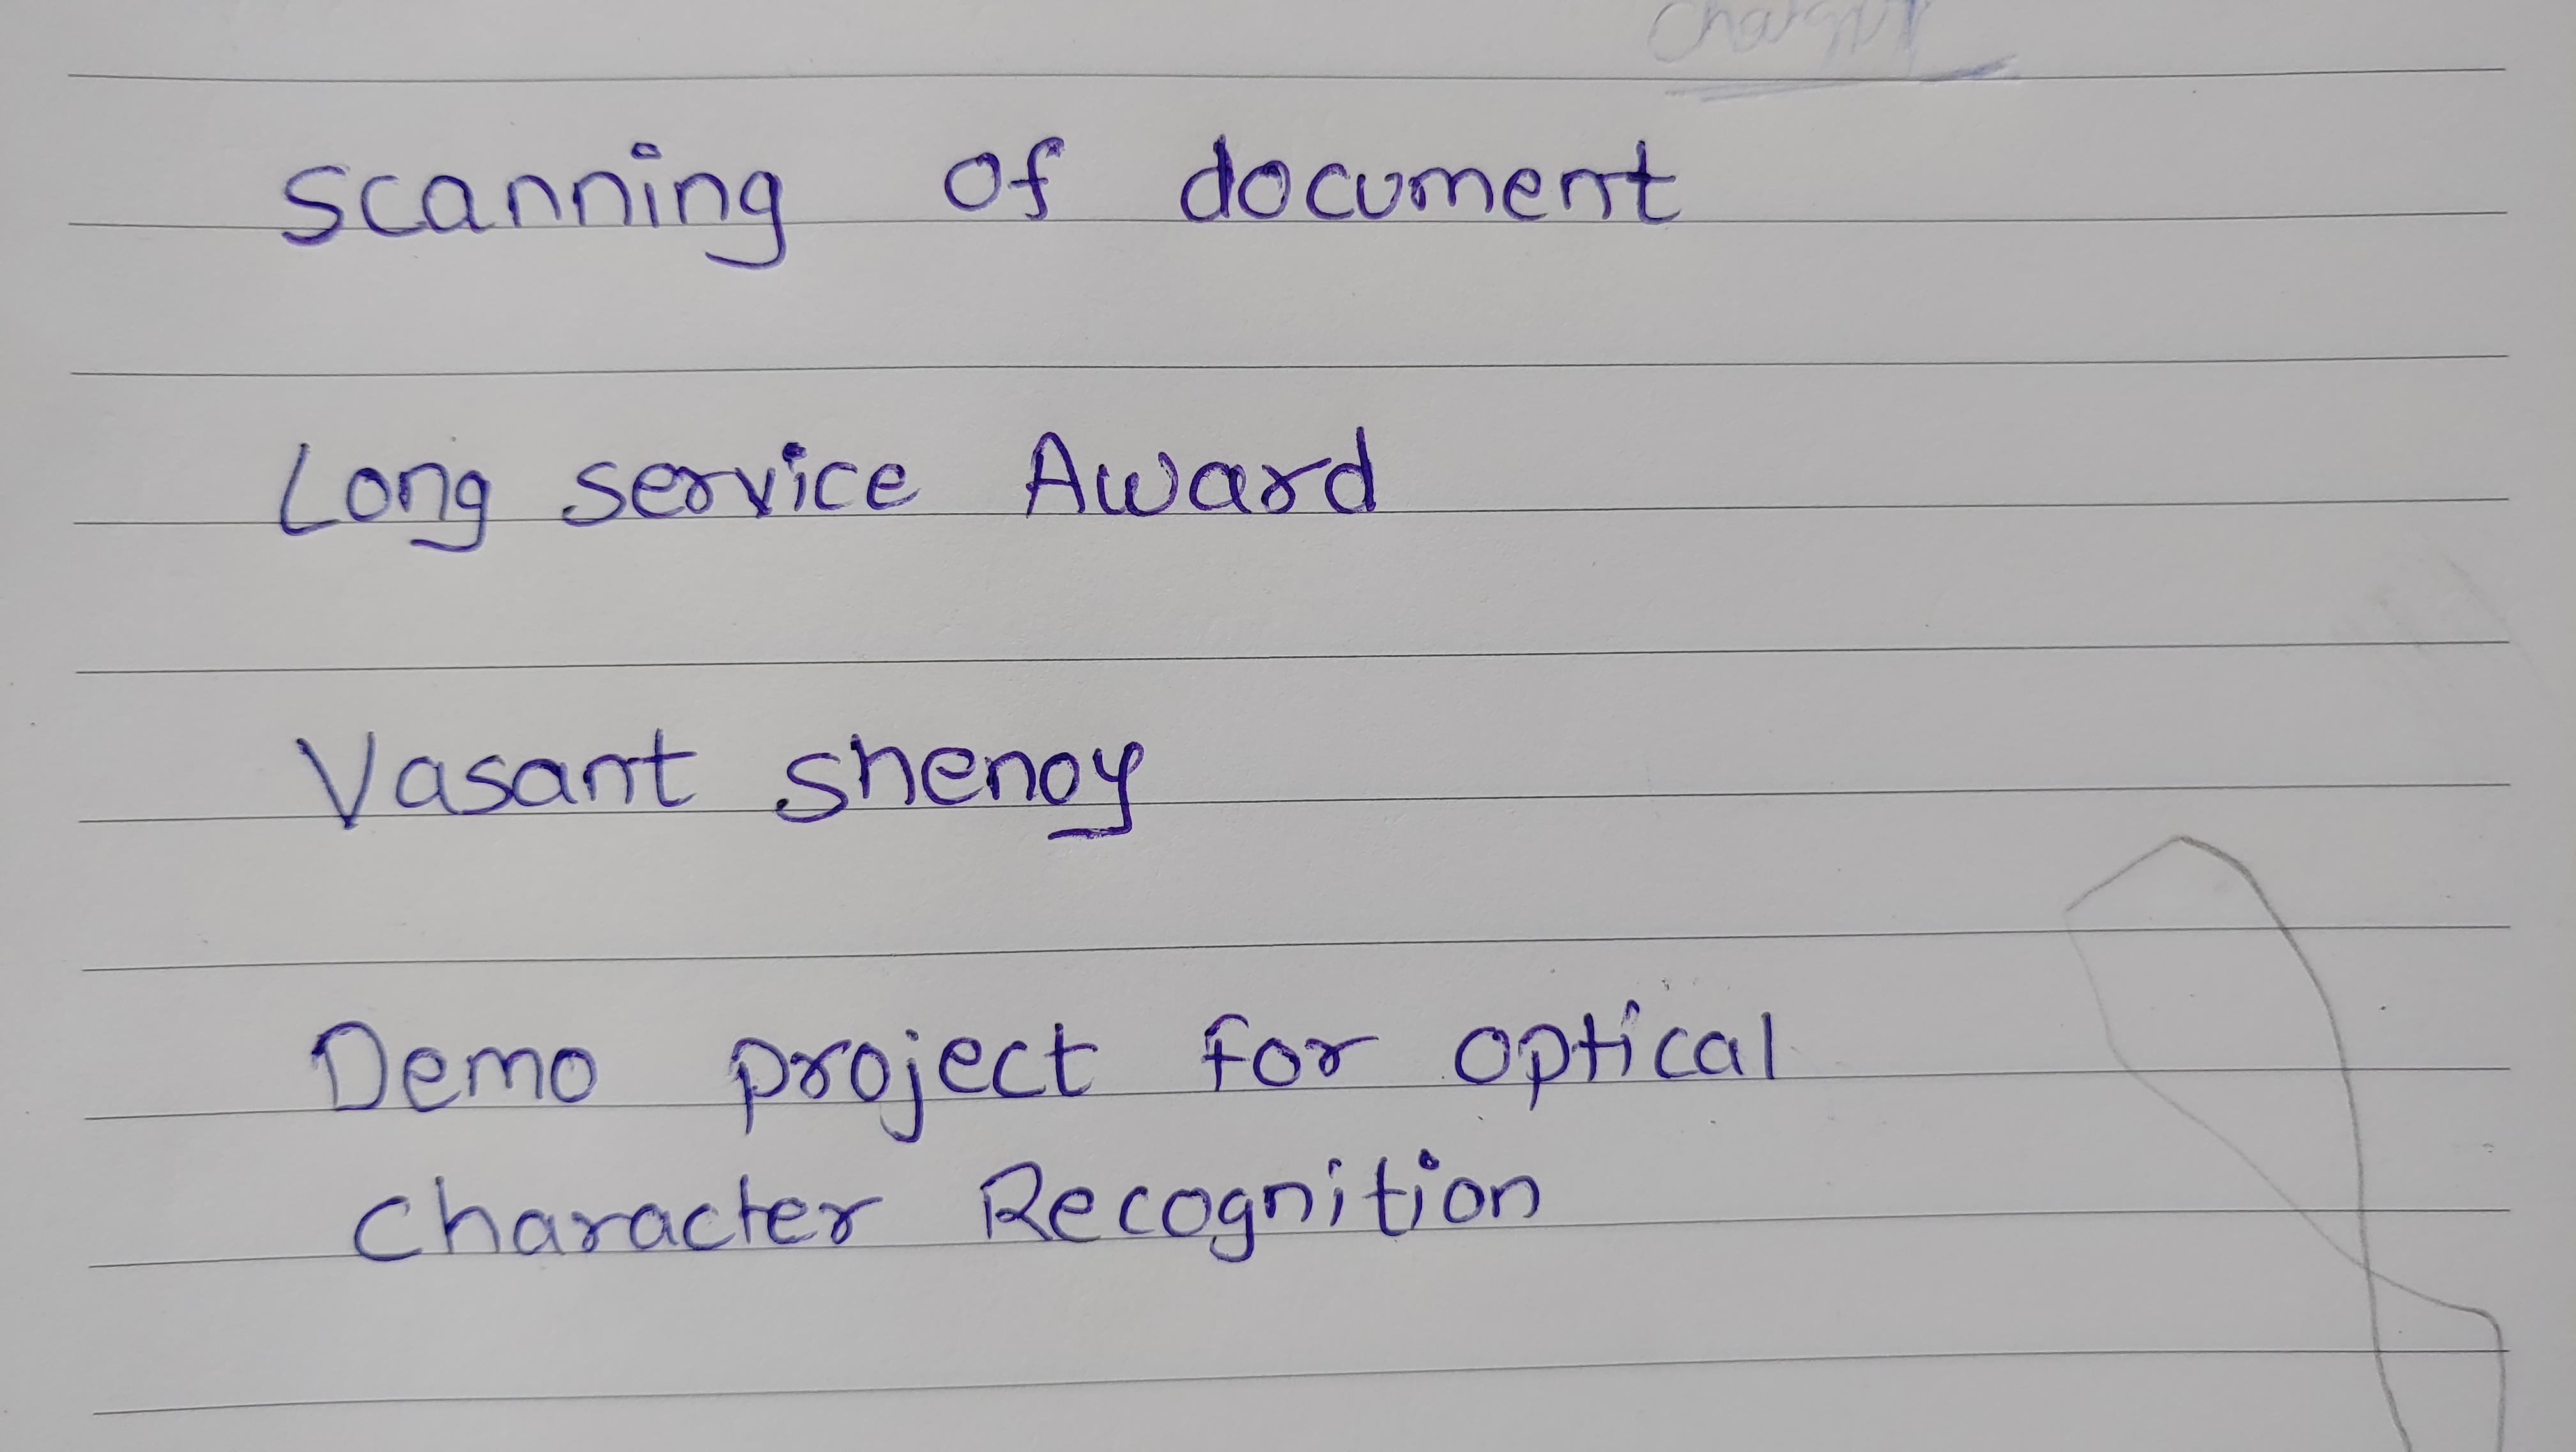 Scanning of document
Long service Award
Vasant shenoy
Demo project for optical
character Recognition